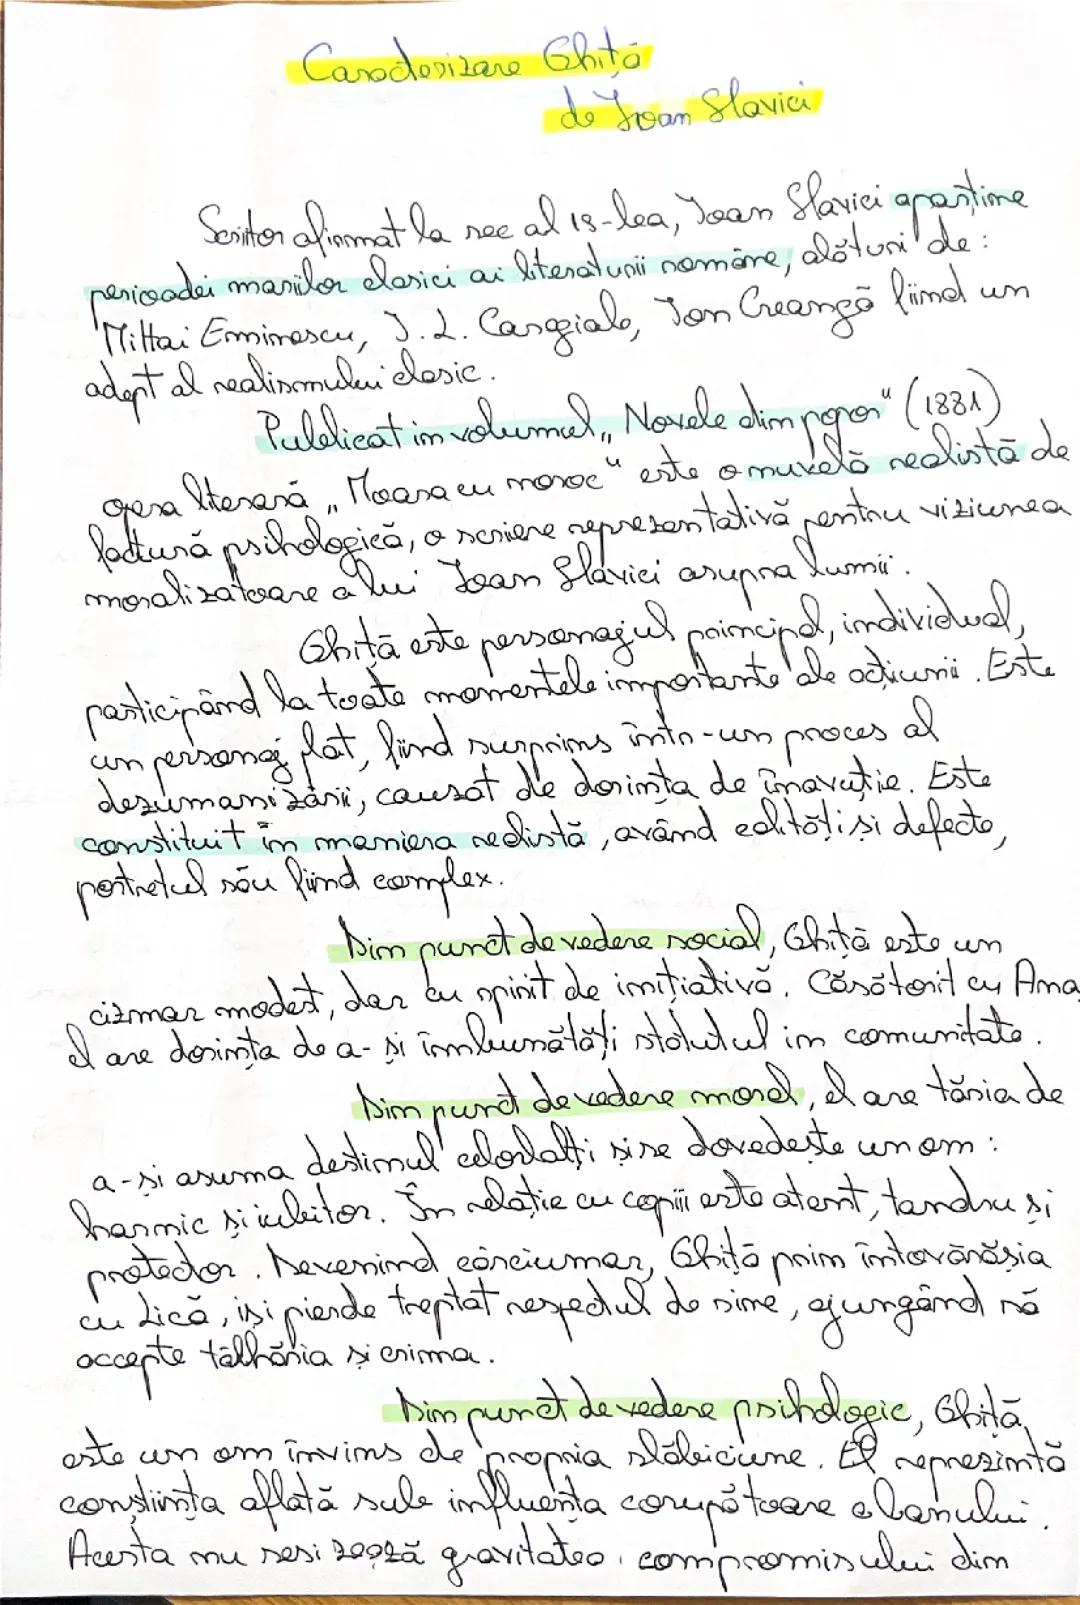 Caracterizare Ghiță
de Ioan Slavici
Scriitor afirmat la sec al 19-lea, Ioan Slavici aparține
perioadei marilor clasici ai literaturii române, alături de:
Mihai Eminescu, I. L. Caragiale, Ion Creangă fiind un
adept al realismului clasic.
Publicat in volumul „Novele din popor" (1881)
opera literară „Moara cu noroc" este o nuvelă realistă de
factură psihologică, o scriere reprezentativă pentru viziunea
moralizatoare a lui Ioan Slavici asupra lumii.
Ghiță este personajul principal, individual,
participând la toate momentele importante ale acțiunii. Este
un personaj plat, fiind surprins într-un proces al
dezumanizării, cauzat de dorința de înavuție. Este
constituit în maniera realistă, având calități și defecte,
portretul său fiind complex.
Din punct de vedere social, Ghiță este un
cizmar modest, dar cu spirit de inițiativă. Căsătorit cu Ana
el are dorința de a-și îmbunătăți statutul in comunitate.
Din punct de vedere moral, el are tăria de
a-și asuma destinul celorlalți și se dovedește un om:
harnic și iubitor. În relație cu copiii este atent, tandru și
protector. Devenind cârciumar, Ghiță prin întovărășia
cu Lică, iși pierde treptat respectul de sine, ajungând să
accepte tâlhăria și crima.
Din punct de vedere psihologic, Ghiță,
este un om învins de propria slăbiciune. El reprezintă
conștiința aflată sub influența corupătoare a banului.
Acesta nu sesizează gravitatea compromisului din